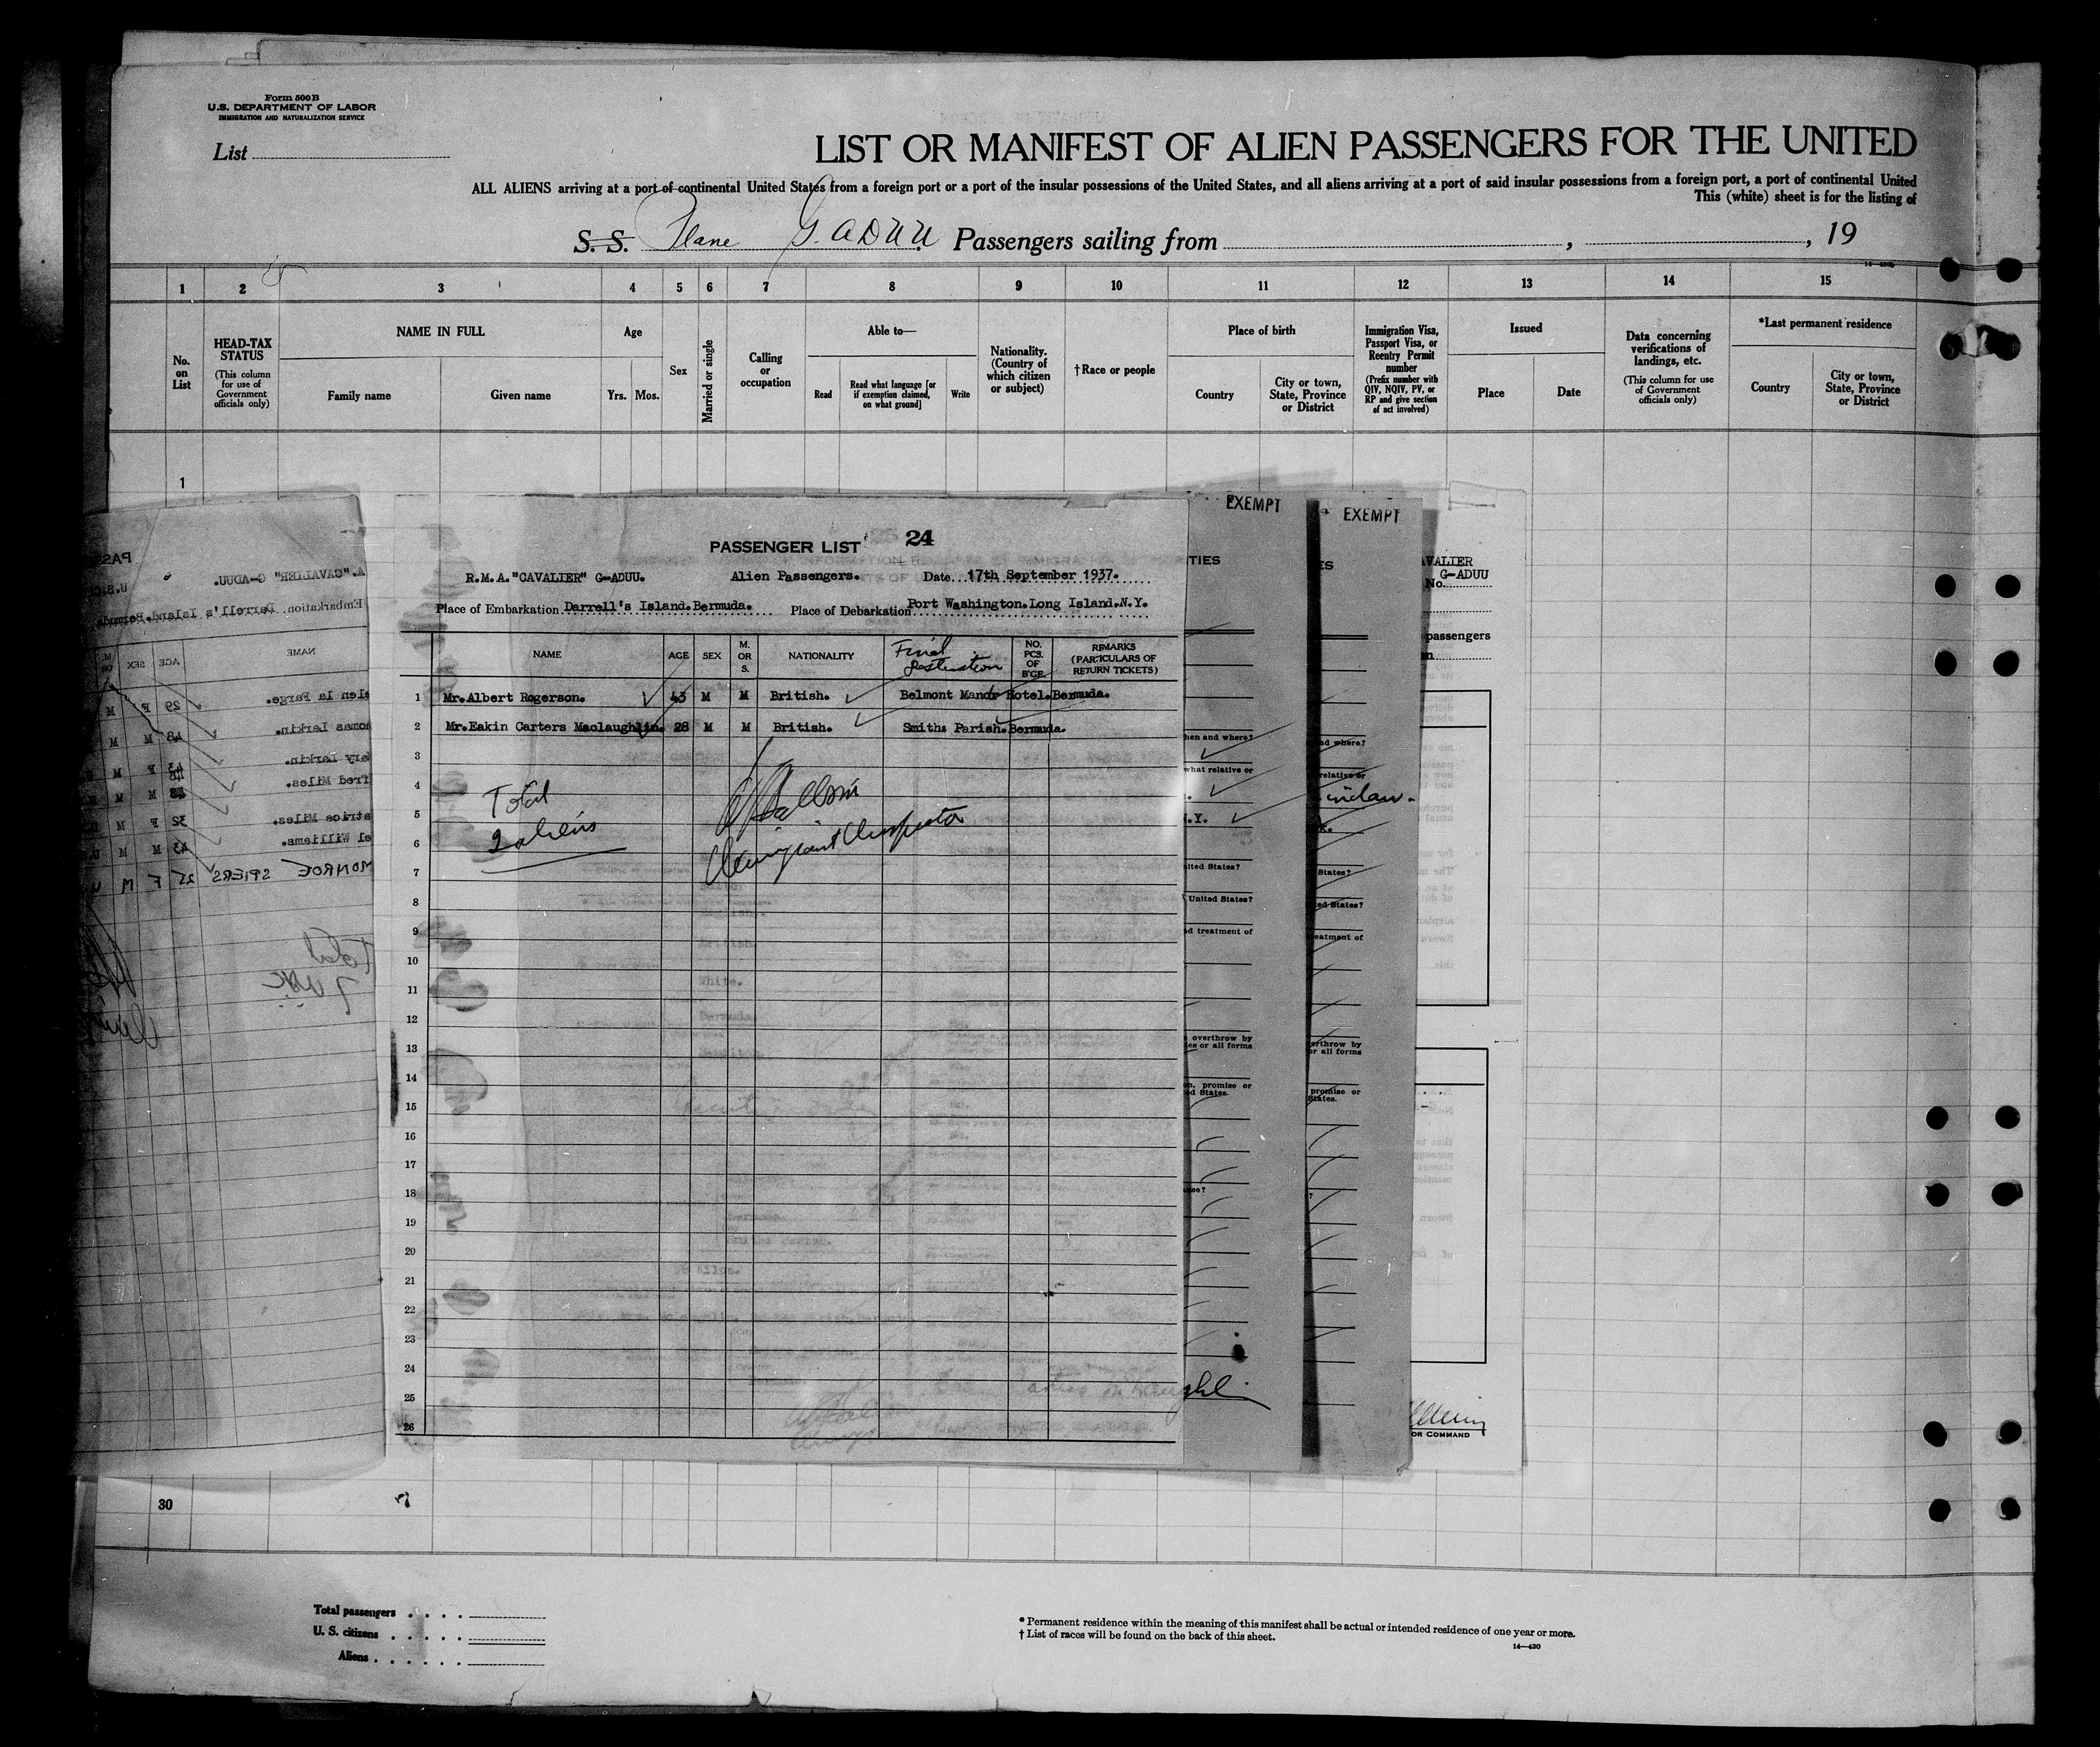 Form 500 B
U.S. DEPARTMENT OF LABOR
IMMIGRATION AND NATURALIZATION SERVICE
List
LIST OR MANIFEST OF ALIEN PASSENGERS FOR THE UNITED
ALL ALIENS arriving at a port of continental United States from a foreign port or a port of the insular possessions of the United States, and all aliens arriving at a port of said insular possessions from a foreign port, a port of continental United
This (white) sheet is for the listing of
S. S. Plane G. ADUU Passengers sailing from , , 19
1 2 3 4 5 6 7 8 9 10 11 12 13 14 15
No. on List
HEAD-TAX STATUS
(This column for use of Government officials only)
NAME IN FULL
Family name Given name
Age
Yrs. Mos.
Sex
Married or single
Calling or occupation
Able to—
Read
Read what language [or if exemption claimed, on what ground]
Write
Nationality. (Country of which citizen or subject)
† Race or people
Place of birth
Country
City or town, State, Province or District
Immigration Visa, Passport Visa, or Reentry Permit number
(Prefix number with QIV, NQIV, PV, or RP and give section of act involved)
Issued
Place Date
Data concerning verifications of landings, etc.
(This column for use of Government officials only)
*Last permanent residence
Country
City or town, State, Province or District
1
EXEMPT
EXEMPT
PASSENGER LIST 24
R.M.A."CAVALIER" G-ADUU. Alien Passengers. Date 17th September 1937.
Place of Embarkation Darrell's Island.Bermuda. Place of Debarkation Port Washington.Long Island.N.Y.
NAME AGE SEX M. OR S. NATIONALITY Final Destination NO. PCS. OF B'GE. REMARKS (PARTICULARS OF RETURN TICKETS)
1 Mr.Albert Rogerson. 43 M M British. Belmont Manor Hotel.Bermuda.
2 Mr.Eakin Carters Maclaughlin. 28 M M British. Smiths Parish.Bermuda.
3
4 Total
5 2 aliens
Immigrant Inspector
6
7
8
9
10
11
12
13
14
15
16
17
18
19
20
21
22
23
24
25
26
TIES
hen and where?
what relative or
.Y.
ited States?
United States?
d treatment of
overthrow by
es or all forms
n, promise or
ed States.
VALIER
G-ADUU
No.
passengers
OR COMMAND
A."CAVALIER" G-ADUU.
Embarkation. Darrell's Island.Bermuda
NAME AGE SEX
elen la Farge. 29 F M
omas Larkin. 48 M M
ary Larkin. 43 F M
fred Miles. M M
atrice Miles. 32 F M
el Williams. 43 M M
MONROE SPIERS 25 F M
Total
7 USC
30
Total passengers
U. S. citizens
Aliens
* Permanent residence within the meaning of this manifest shall be actual or intended residence of one year or more.
† List of races will be found on the back of this sheet.
14—430